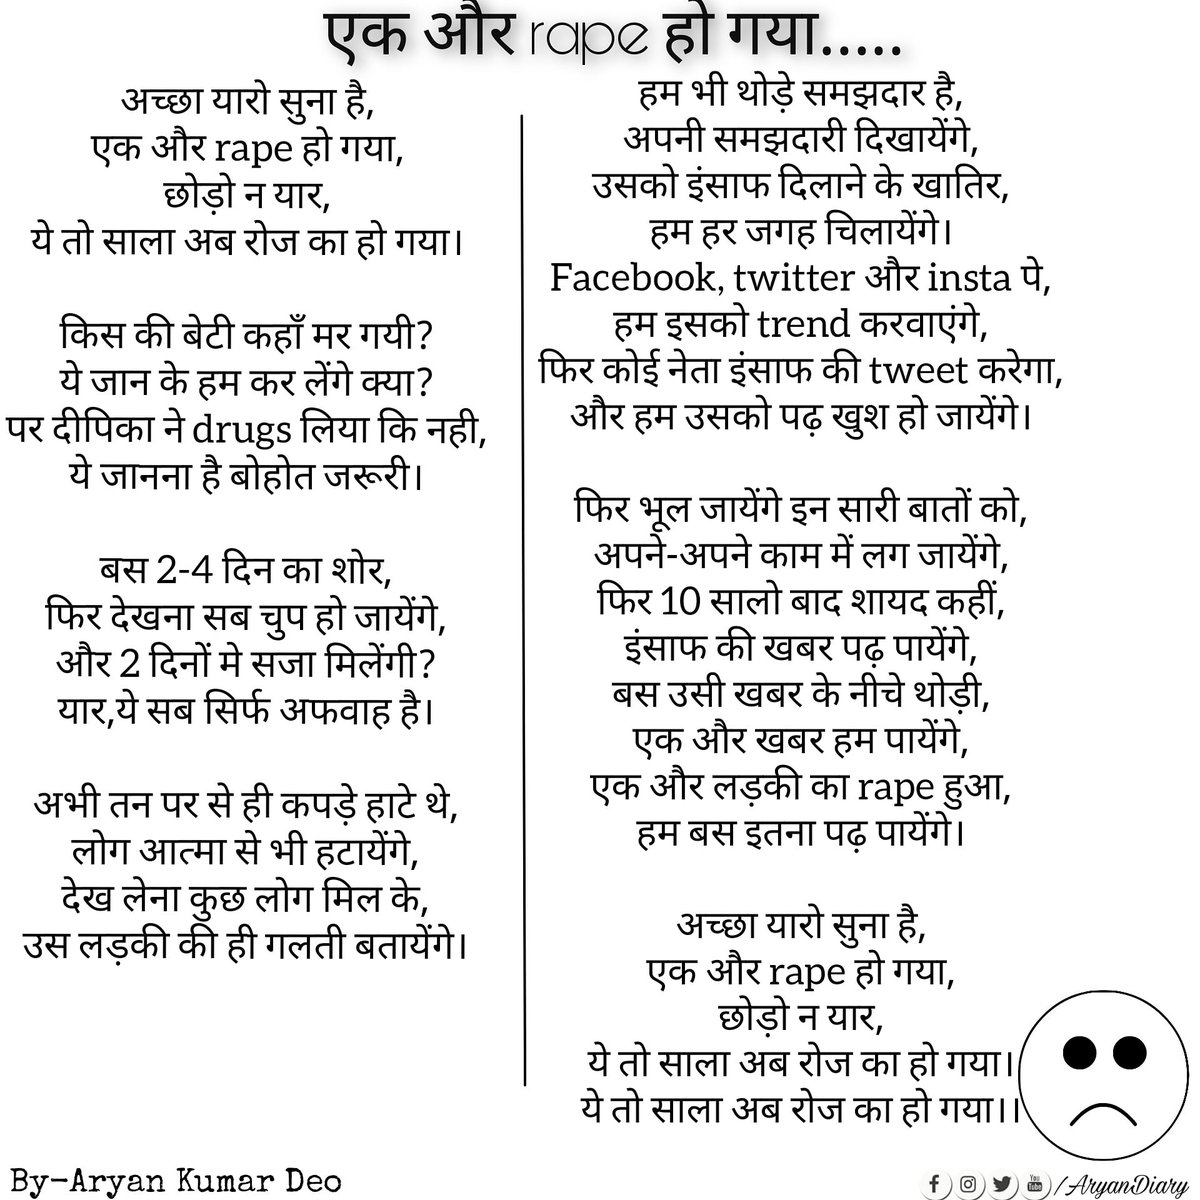 एक और rape हो गया.....
अच्छा यारो सुना है,
एक और rape हो गया,
छोड़ो न यार,
ये तो साला अब रोज का हो गया।
किस की बेटी कहाँ मर गयी?
ये जान के हम कर लेंगे क्या?
पर दीपिका ने drugs लिया कि नही,
ये जानना है बोहोत जरूरी।
बस 2-4 दिन का शोर,
फिर देखना सब चुप हो जायेंगे,
और 2 दिनों मे सजा मिलेंगी?
यार,ये सब सिर्फ अफवाह है।
अभी तन पर से ही कपड़े हाटे थे,
लोग आत्मा से भी हटायेंगे,
देख लेना कुछ लोग मिल के,
उस लड़की की ही गलती बतायेंगे।
हम भी थोड़े समझदार है,
अपनी समझदारी दिखायेंगे,
उसको इंसाफ दिलाने के खातिर,
हम हर जगह चिलायेंगे।
Facebook, twitter और insta पे,
हम इसको trend करवाएंगे,
फिर कोई नेता इंसाफ की tweet करेगा,
और हम उसको पढ़ खुश हो जायेंगे।
फिर भूल जायेंगे इन सारी बातों को,
अपने-अपने काम में लग जायेंगे,
फिर 10 सालो बाद शायद कहीं,
इंसाफ की खबर पढ़ पायेंगे,
बस उसी खबर के नीचे थोड़ी,
एक और खबर हम पायेंगे,
एक और लड़की का rape हुआ,
हम बस इतना पढ़ पायेंगे।
अच्छा यारो सुना है,
एक और rape हो गया,
छोड़ो न यार,
ये तो साला अब रोज का हो गया।
ये तो साला अब रोज का हो गया।।
By-Aryan Kumar Deo
You Tube /AryanDiary